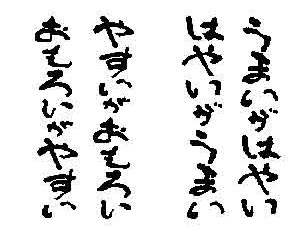 うまいがはやい
はやいがうまい
やすいがおもろい
おもろいがやすい